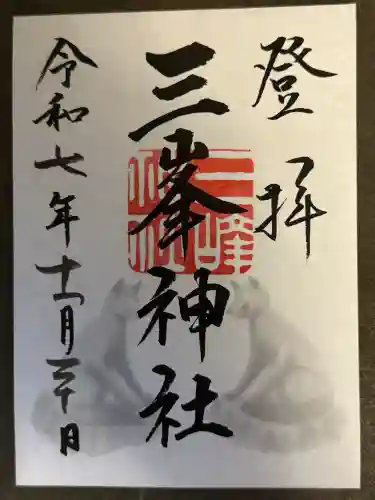 登拝
三峯神社
令和七年十一月三十日